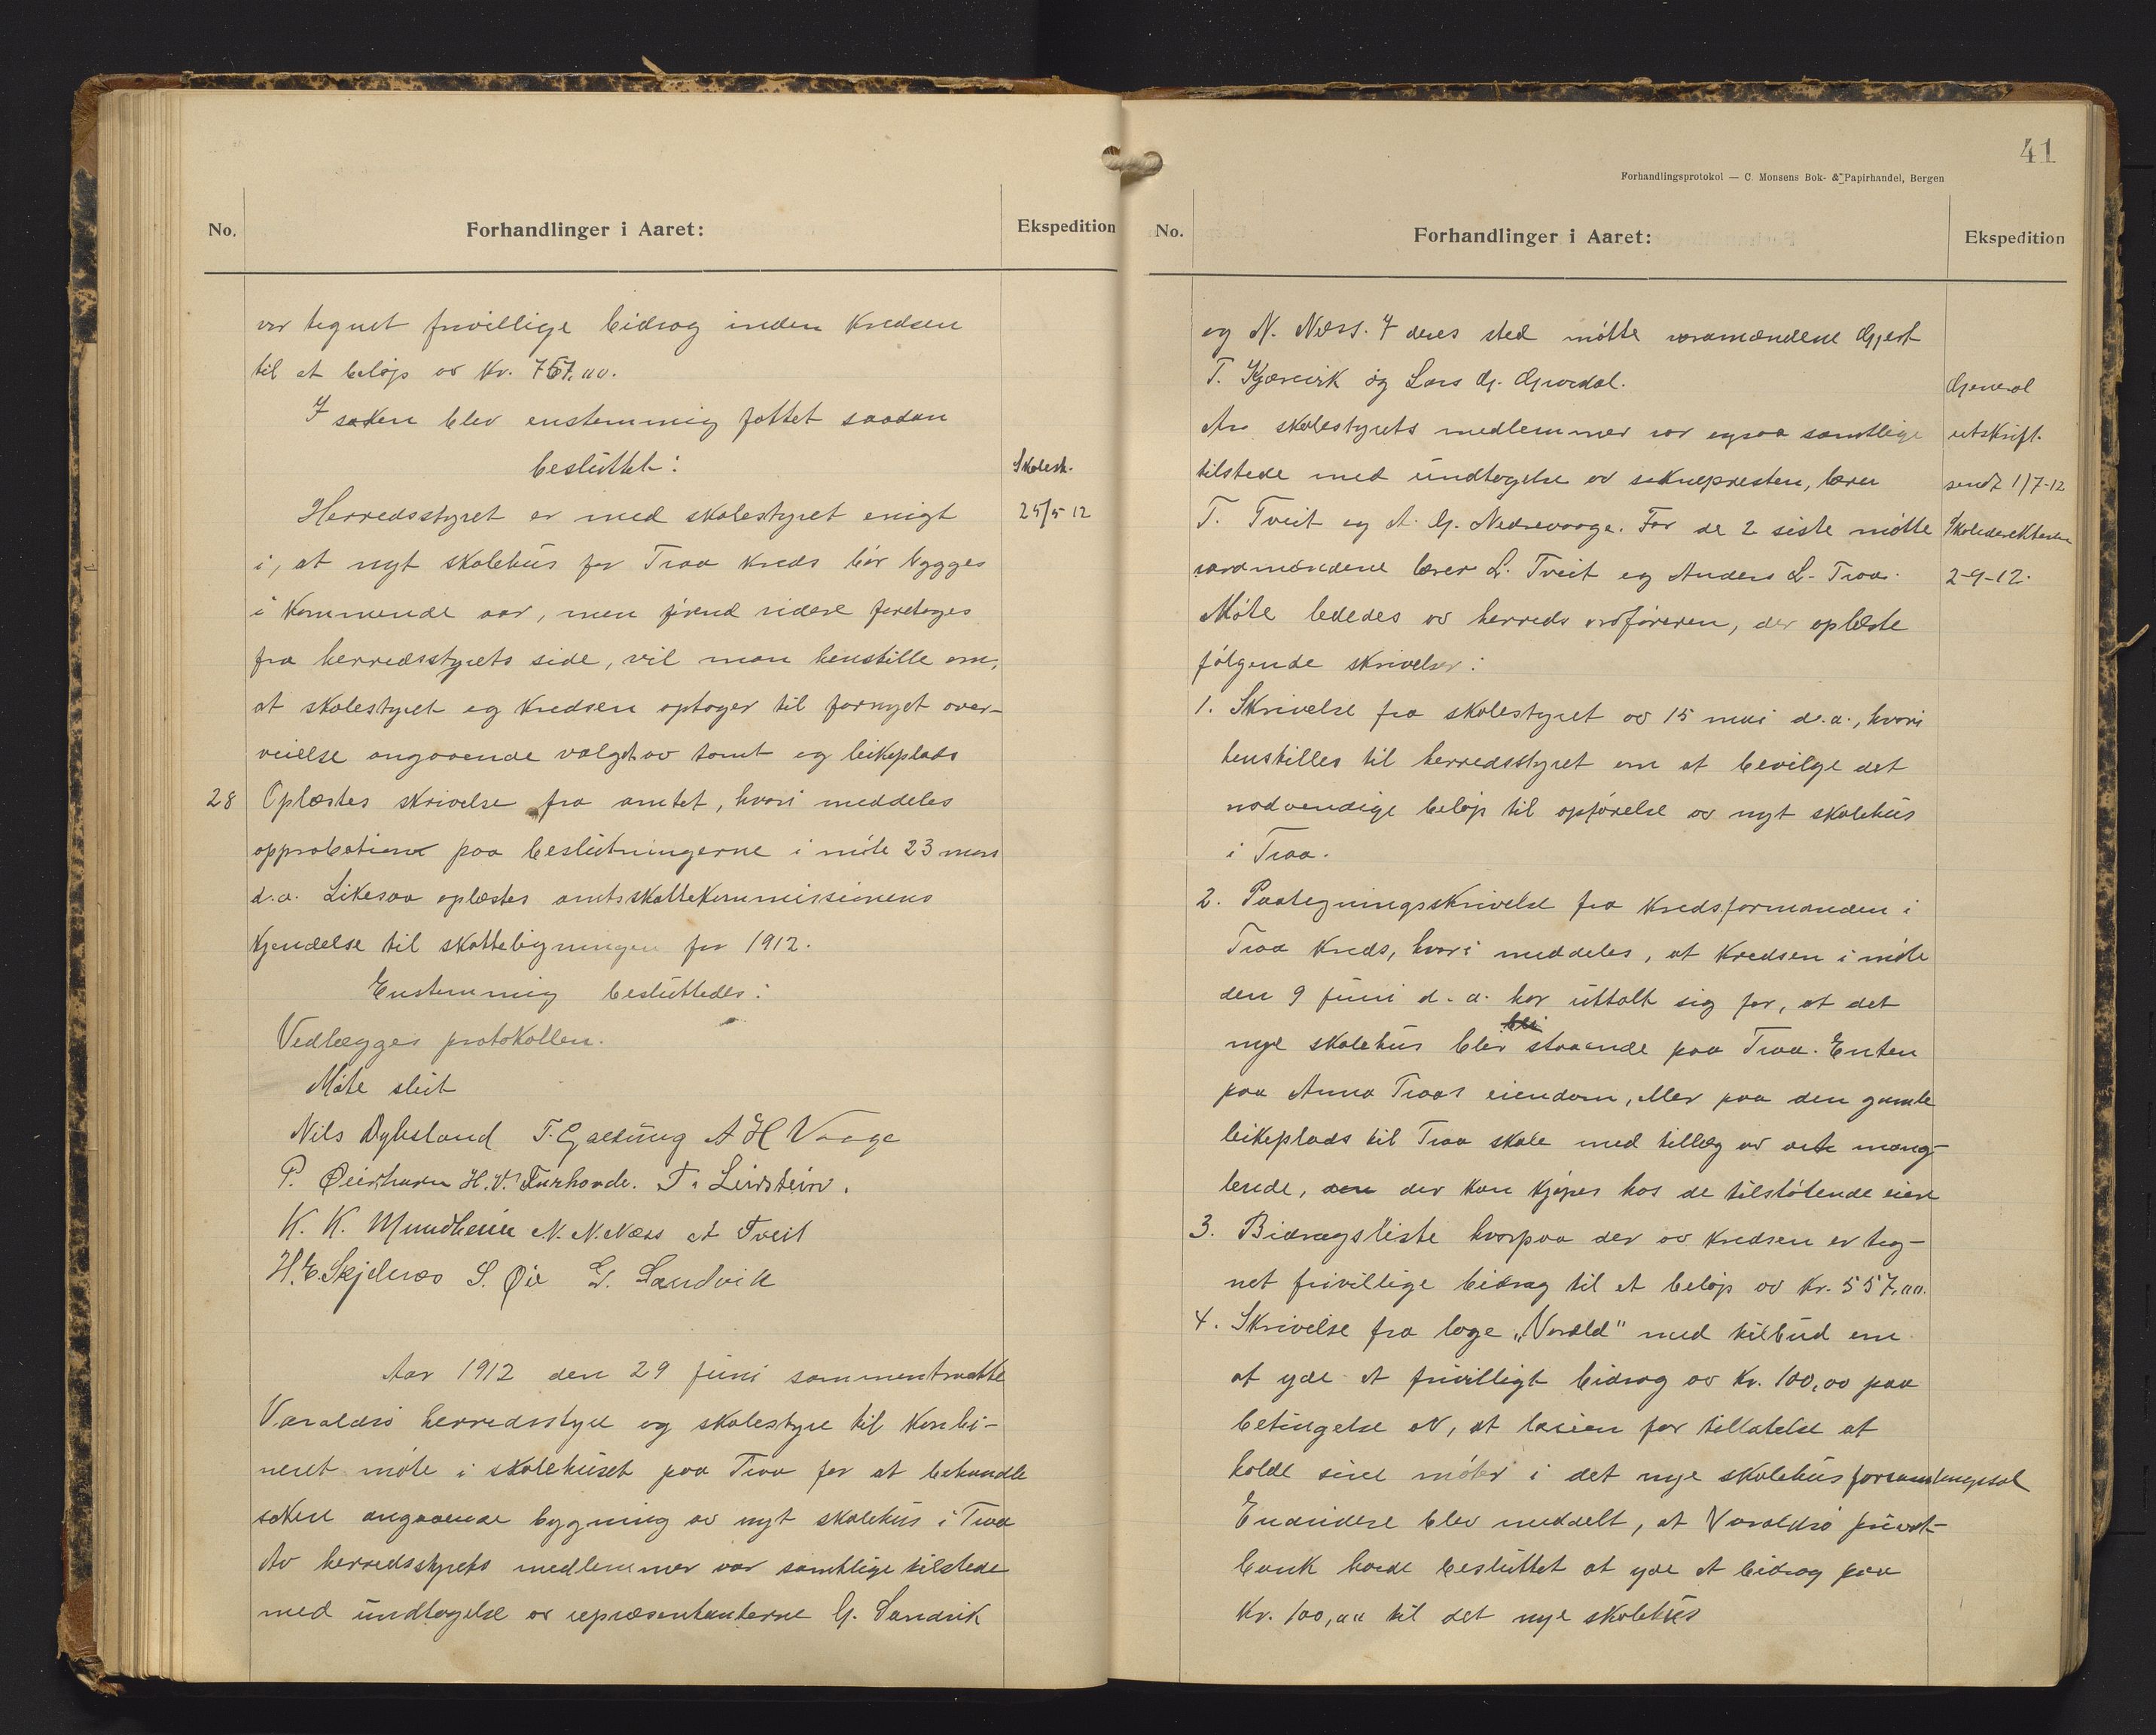 No.
Forhandlinger i Aaret:
Ekspedition
var tegnet frivillige bidrag inden kredsen
til et beløp av kr. 757,00.
I saken blev enstemmig fattet saadan
besluttet:
Skolest.
25/5 12
Herredsstyret er med skolestyret enigt
i, at nyt skolehus for Traa kreds bør bygges
i kommende aar, men førend videre foretages
fra herredsstyrets side, vil man henstille om,
at skolestyret og kredsen optager til fornyet over-
veielse angaaende valget av tomt og leikeplads
28 Oplæstes skrivelse fra amtet, hvori meddeles
approbation paa beslutningerne i møte 23 mars
d.a. Likesaa oplæstes amtsskattekommissionens
kjendelse til skatteligningen for 1912.
Enstemmig besluttedes:
Vedlægges protokollen.
Møte slut
Nils Dyhsland T. Galtung A H Vaage
P. Øierhavn H.V. Furhovde. T. Leirstein.
K. K. Mundheim N. N. Næss A Tveit
H.E. Skjelnæs S. Øie G. Sandvik
Aar 1912 den 29 juni sammentraatte
Varaldsø herredsstyre og skolestyre til kombi-
neret møte i skolehuset paa Traa for at behandle
saken angaaende bygning av nyt skolehus i Traa
Av herredsstyrets medlemmer var samtlige tilstede
med undtagelse av repræsentanterne G. Sandvik
41
Forhandlingsprotokol — C. Monsens Bok- & Papirhandel, Bergen
No.
Forhandlinger i Aaret:
Ekspedition
og N. Næss. I deres sted møtte varamændene Gjert
T. Kjærvik og Lars G. Gravdal.
Av skolestyrets medlemmer var ogsaa samtlige
tilstede med undtagelse av soknepresten, lærer
T. Tveit og A. G. Nedrevaage. For de 2 siste møtte
varamændene lærer L. Tveit og Anders L. Traa.
General
utskrift
sendt 1/7-12
Skoledirektøren
2-9-12.
Møte lededes av herreds ordføreren, der oplæste
følgende skrivelser:
1. Skrivelse fra skolestyret av 15 mai d.a., hvori
henstilles til herredsstyret om at bevilge det
nødvendige beløp til opførelse av nyt skolehus
i Traa.
2. Paategningsskrivelse fra kredsformanden i
Traa kreds, hvori meddeles, at kredsen i møte
den 9 juni d.a. har uttalt sig for, at det
bli
nye skolehus blev staaende paa Traa. Enten
paa Anna Traas eiendom, eller paa den gamle
leikeplads til Traa skole med tillæg av det mang-
lende, den der kan kjøpes hos de tilstøtende eiere
3. Bidragsliste hvorpaa der av kredsen er teg-
net frivillige bidrag til et beløp av kr. 557,00.
4. Skrivelse fra loge "Varald" med tilbud om
at yde et frivilligt bidrag av kr. 100,00 paa
betingelse av, at losjen faar tillatelse at
holde sine møter i det nye skolehus forsamlingssal
Envidere blev meddelt, at Varaldsø privat-
bank havde besluttet at yde et bidrag paa
kr. 100,00 til det nye skolehus